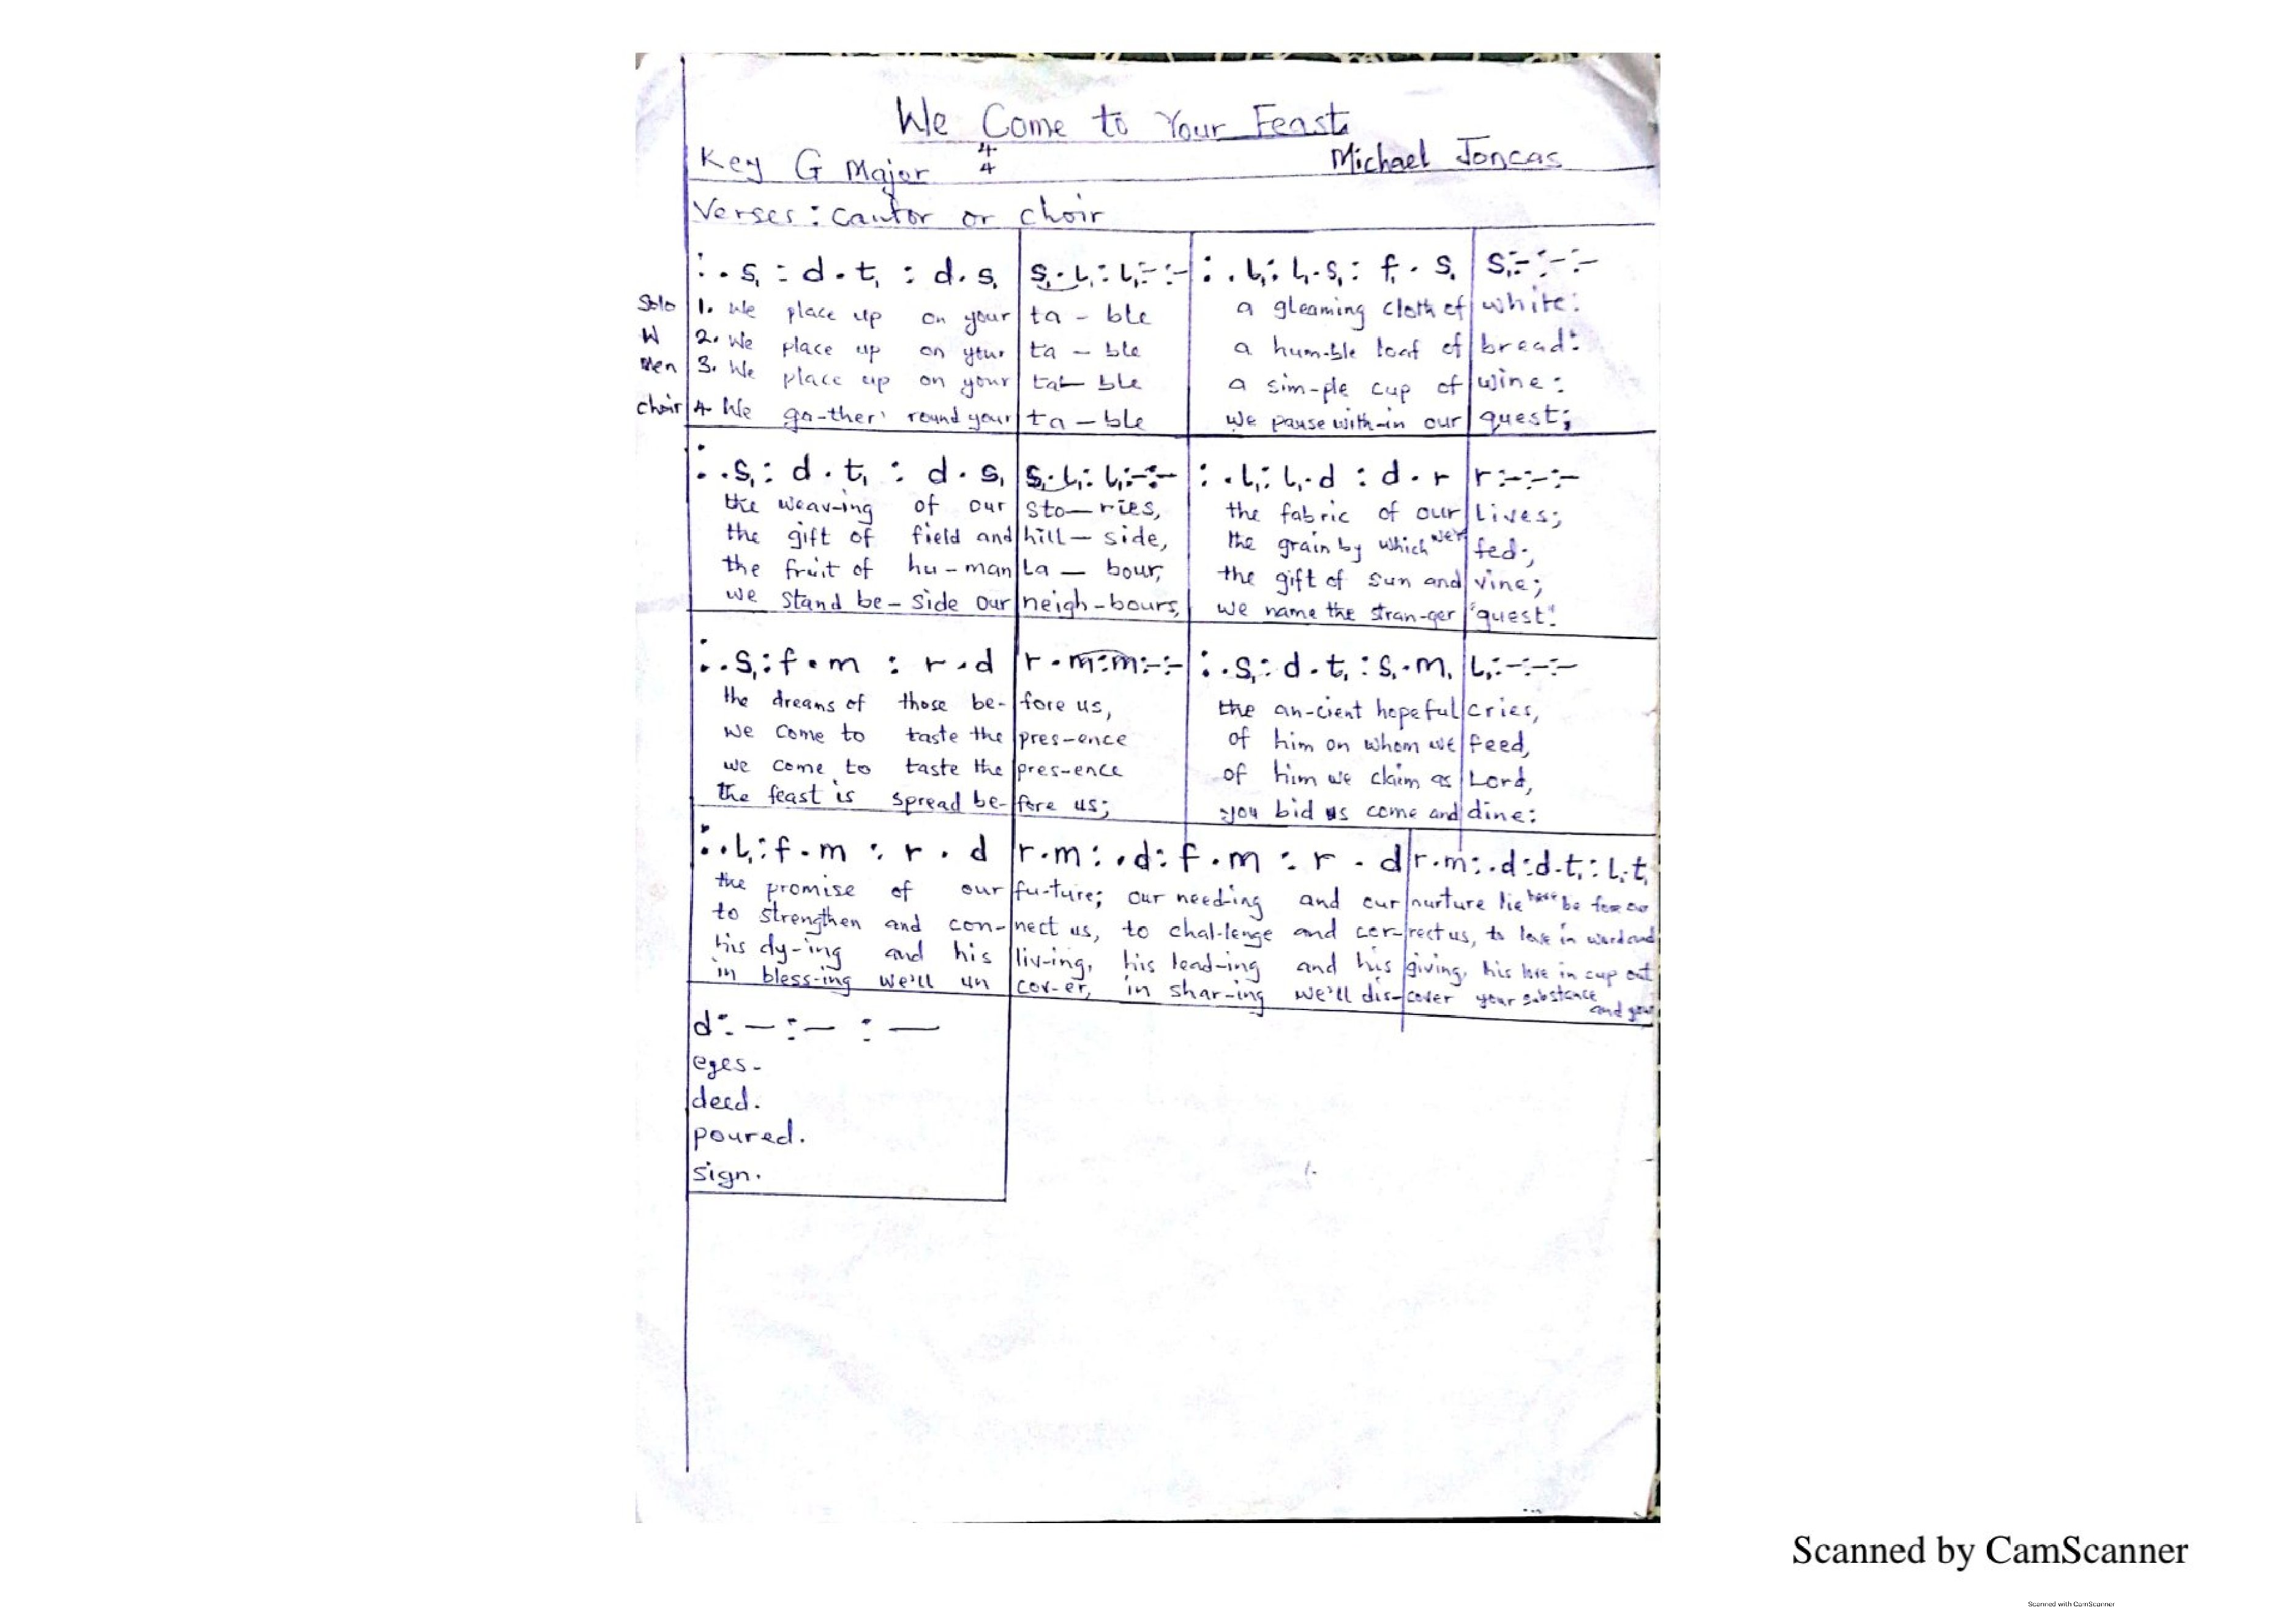 We Come to Your Feast
Key G Major 4/4 Michael Joncas
Verses: Cantor or choir
: . s, : d . t, : d . s, | s, . l, : l, : - : - | : . l, : l, . s, : f, . s, | s, : - : - : -
Solo 1. We place up on your ta - ble a gleaming cloth of white:
W 2. We place up on your ta - ble a hum-ble loaf of bread:
Men 3. We place up on your ta - ble a sim-ple cup of wine:
Choir 4. We ga-ther' round your ta - ble we pause with-in our quest;
: . s, : d . t, : d . s, | s, . l, : l, : - : - | : . l, : l, . d : d . r | r : - : - : -
the weav-ing of our sto - ries, the fabric of our lives;
the gift of field and hill - side, the grain by which we're fed;
the fruit of hu - man La - bour, the gift of sun and vine;
we stand be - side our neigh - bours, we name the stran-ger "guest".
: . s, : f . m : r . d | r . m : m : - : - | : . s, : d . t, : s, . m, | l, : - : - : -
the dreams of those be- fore us, the an-cient hopeful cries,
we come to taste the pres-ence of him on whom we feed,
we come to taste the pres-ence of him we claim as Lord,
the feast is spread be- fore us; you bid us come and dine:
: . l, : f . m : r . d | r . m : . d : f . m : r . d | r . m : . d : d . t, : l, . t,
the promise of our fu-ture; our need-ing and our nurture lie here be fore our
to strengthen and con- nect us, to chal-lenge and cor- rect us, to love in word and
his dy-ing and his liv-ing, his lead-ing and his giving, his love in cup out
in bless-ing we'll un cov-er, in shar-ing we'll dis- cover your substance and your
d : - : - : -
eyes.
deed.
poured.
sign.
Scanned by CamScanner
Scanned with CamScanner